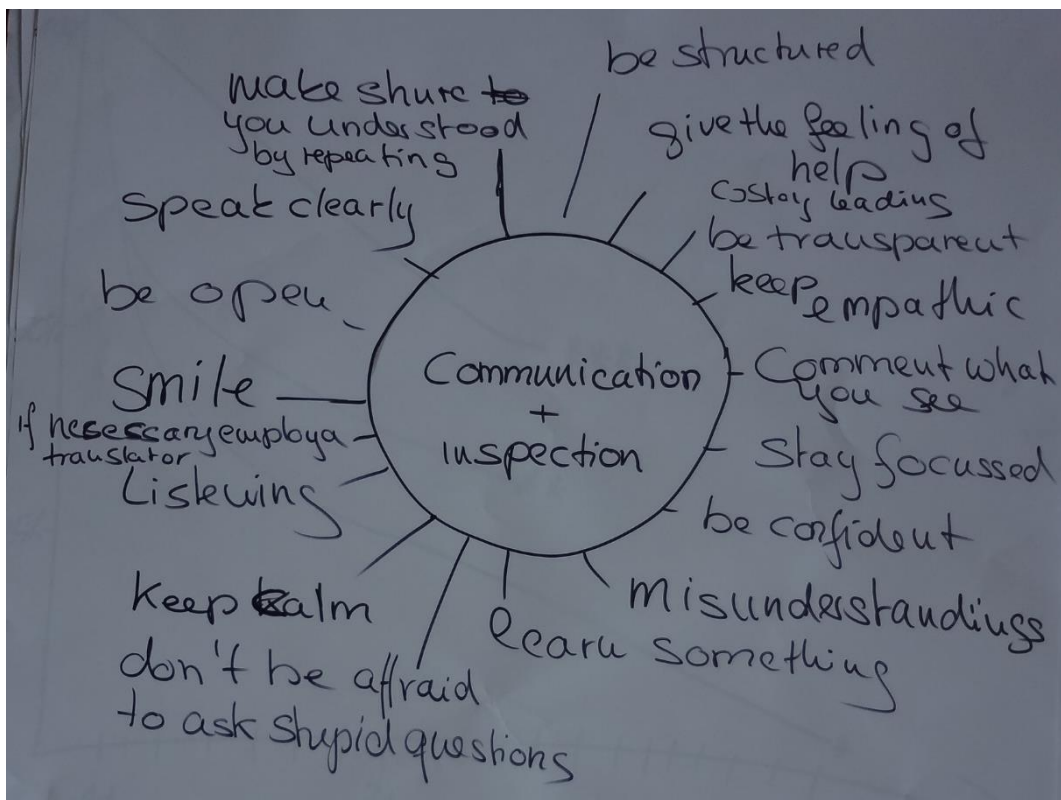 be structured
give the feeling of
help
↳ stay leading
be transparent
keep
empathic
Comment what
you see
Stay focussed
be confident
Misunderstandings
learn something
don't be affraid
to ask stupid questions
Keep calm
Listening
if necessary employ a
translator
Smile
be open
Speak clearly
make shure to
you understood
by repeating
Communication
+
inspection